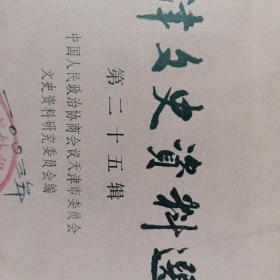 津文史资料選
第二十五辑
中国人民政治协商会议天津市委员会
文史资料研究委员会编